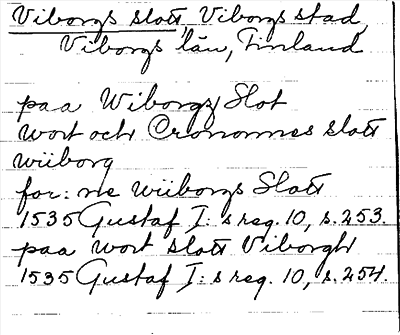 Viborgs slott Viborgs stad,
Viborgs län, Finland
paa Wiborgz Slot
wort och Cronones slott
wiiborg
for:ne wiiborgs Slott
1535 Gustaf I:s reg. 10, s. 253.
paa wort slott Viborgh
1535 Gustaf I:s reg. 10, s. 254.